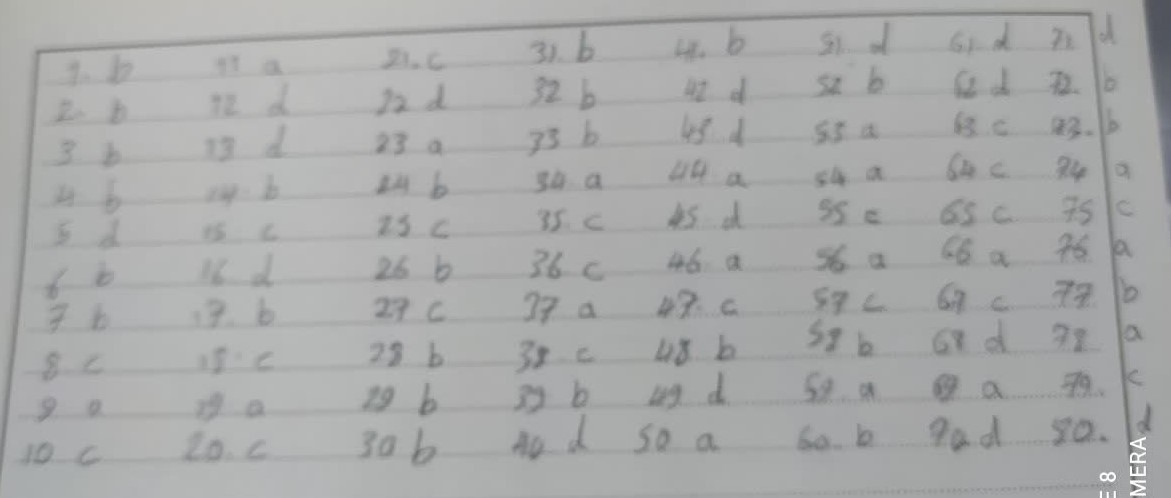 1. b 11 a 21. c 31. b 41. b 51 d 61 d 71 d
2. b 12 d 22 d 32 b 42 d 52 b 62 d 72. b
3 b 13 d 23 a 33 b 43 d 53 a 63 c 73. b
4 b 14 b 24 b 34 a 44 a 54 a 64 c 74 a
5 d 15 c 25 c 35 c 45 d 55 c 65 c 75 c
6 b 16 d 26 b 36 c 46 a 56 a 66 a 76 a
7 b 17. b 27 c 37 a 47. c 57 c 67 c 77. b
8 c 18. c 28 b 38 c 48 b 58 b 68 d 78 a
9 a 19 a 29 b 39 b 49 d 59. a 69 a 79. c
10 c 20. c 30 b 40 d 50 a 60. b 70 d 80. d
E 8
MERA